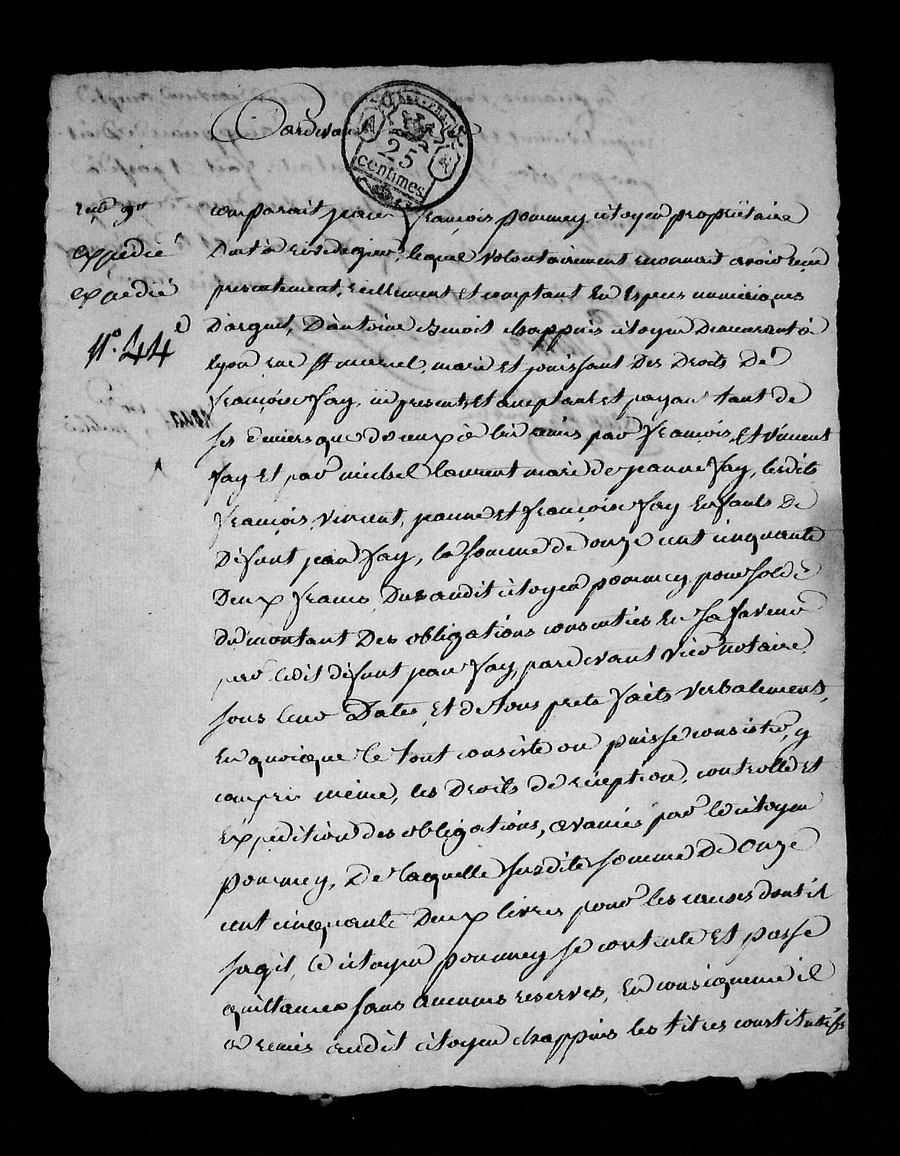 Pardevant
25
centimes
expédié
expédié
N°. 44
comparait jean françois pommey citoyen propriétaire
lequel volontairement reconnait avoir reçu
presentement, reellement et comptant en especes numeriques
D'argent, D'antoine Benoit chappuis citoyen Demeurant à
lyon rue mari et jouissant Des Droits De
françoise fay, ici present et acceptant et payant tant de
ses Deniers que de ceux à lui remis par françois, et vincent
fay et par michel laurent mari de jeanne fay, lesdits
françois, vincent, jeanne et françoise fay Enfants De
Défunt jean fay, la somme de onze cent cinquante
Deux francs, Due audit citoyen pommey pour solde
du montant Des obligations consenties En sa faveur
par ledit défunt jean fay, pardevant notaire
sous leur Date, et de tous prets faits verbalement,
En quoique le tout consiste ou puisse consister, y
compris même, les Droits de réception, controlle et
Expédition des obligations, avancés par le citoyen
pommey, De laquelle susdite somme De Onze
cent cinquante Deux livres pour les causes dont il
sagit, le citoyen pommey se contente Et passe
quittance sans aucunes reserves, En consequence il
a remis audit citoyen chappuis les titres constitutifs